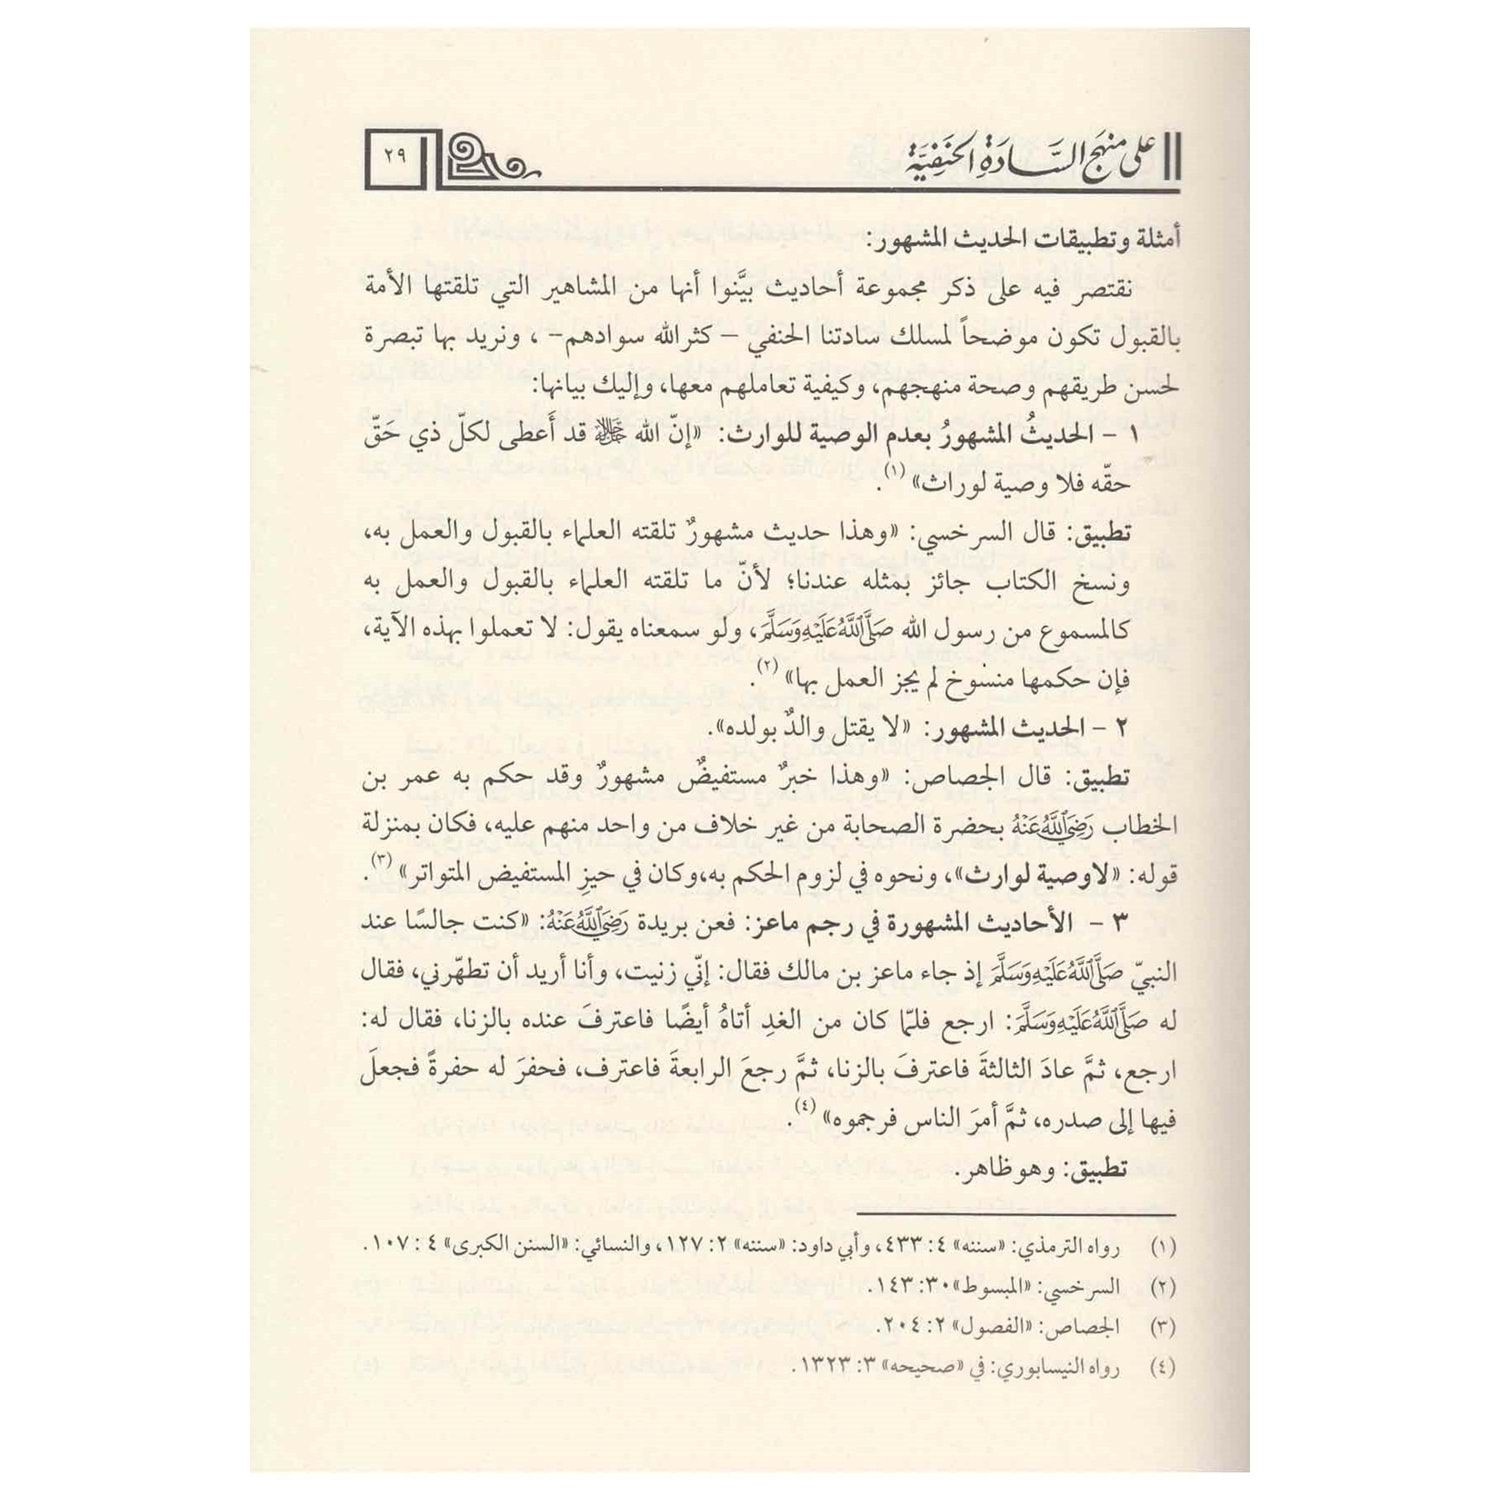 على منهج السَّادَةِ الحَنَفِيَّةِ
٢٩
أمثلة وتطبيقات الحديث المشهور:
نقتصر فيه على ذكر مجموعة أحاديث بيَّنوا أنها من المشاهير التي تلقتها الأمة
بالقبول تكون موضحاً لمسلك سادتنا الحنفي – كثرالله سوادهم– ، ونريد بها تبصرة
لحسن طريقهم وصحة منهجهم، وكيفية تعاملهم معها، وإليك بيانها:
١ – الحديثُ المشهورُ بعدم الوصية للوارث: «إنّ الله ﷻ قد أَعطى لكلّ ذي حَقّ
حقّه فلا وصية لوراث» (١).
تطبيق: قال السرخسي: «وهذا حديث مشهورٌ تلقته العلماء بالقبول والعمل به،
ونسخ الكتاب جائز بمثله عندنا؛ لأنّ ما تلقته العلماء بالقبول والعمل به
كالمسموع من رسول الله صَلَّى اللَّهُ عَلَيْهِ وَسَلَّمَ، ولو سمعناه يقول: لا تعملوا بهذه الآية،
فإن حكمها منسُوخ لم يجز العمل بها» (٢).
٢ – الحديث المشهور: «لا يقتل والدٌ بولده».
تطبيق: قال الجصاص: «وهذا خبرٌ مستفيضٌ مشهورٌ وقد حكم به عمر بن
الخطاب رَضِيَ اللَّهُ عَنْهُ بحضرة الصحابة من غير خلاف من واحد منهم عليه، فكان بمنزلة
قوله: «لاوصية لوارث»، ونحوه في لزوم الحكم به،وكان في حيزِ المستفيض المتواتر» (٣).
٣ – الأحاديث المشهورة في رجم ماعز: فعن بريدة رَضِيَ اللَّهُ عَنْهُ: «كنت جالسًا عند
النبيّ صَلَّى اللَّهُ عَلَيْهِ وَسَلَّمَ إذ جاء ماعز بن مالك فقال: إنّي زنيت، وأنا أريد أن تطهّرني، فقال
له صَلَّى اللَّهُ عَلَيْهِ وَسَلَّمَ: ارجع فلمّا كان من الغدِ أتاهُ أيضًا فاعترفَ عنده بالزنا، فقال له:
ارجع، ثمَّ عادَ الثالثةَ فاعترفَ بالزنا، ثمَّ رجعَ الرابعةَ فاعترف، فحفرَ له حفرةً فجعلَ
فيها إلى صدره، ثمَّ أمرَ الناس فرجموه» (٤).
تطبيق: وهوظاهر.
(١) رواه الترمذي: «سننه» ٤: ٤٣٣، وأبي داود: «سننه» ٢: ١٢٧، والنسائي: «السنن الكبرى» ٤: ١٠٧.
(٢) السرخسي: «المبسوط»٣٠: ١٤٣.
(٣) الجصاص: «الفصول» ٢: ٢٠٤.
(٤) رواه النيسابوري: في «صحيحه» ٣: ١٣٢٣.